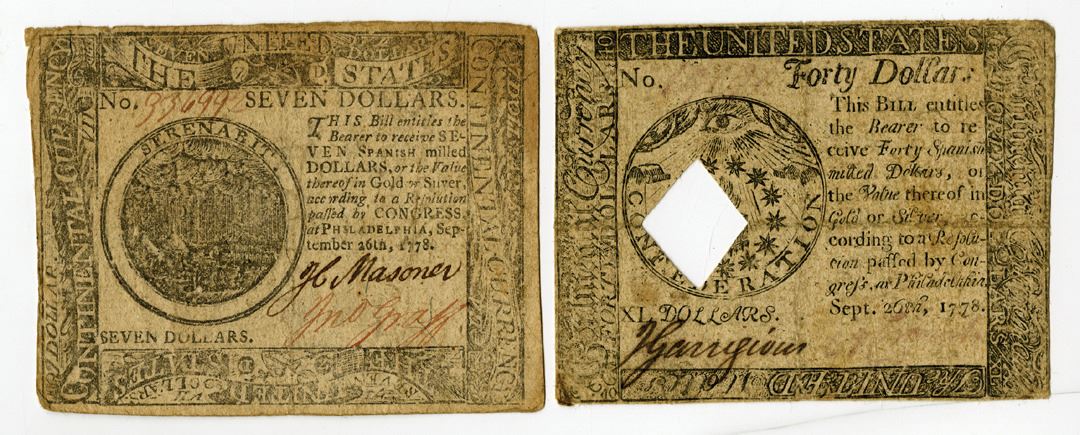 THE UNITED STATES
No. 33699 SEVEN DOLLARS.
THIS Bill entitles the
Bearer to receive SE-
VEN SPANISH milled
DOLLARS, or the Value
thereof in Gold or Silver,
according to a Resolution
passed by CONGRESS,
at PHILADELPHIA, Sep-
tember 26th, 1778.
SERENABIT
H Masoner
Jno Graff
SEVEN DOLLARS.
CONTINENTAL CURRENCY
CONTINENTAL CURRENC
THE UNITED STATES
No. Forty Dollars
This BILL entitles
the Bearer to re-
ceive Forty Spanish
milled Dollars, or
the Value thereof in
Gold or Silver ac-
cording to a Resolu-
tion passed by Con-
gress, at Philadelphia
Sept. 26th, 1778.
CONFEDERATION
XL DOLLARS.
J Garrigious
FORTY DOLLARS
Currency